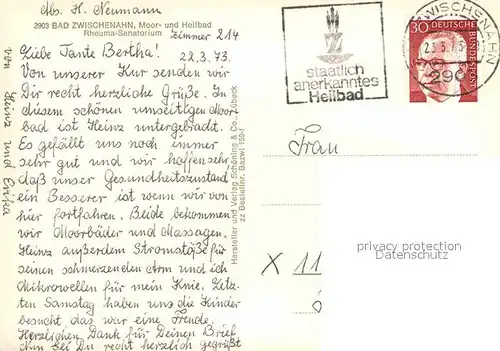 Abs. H. Neumann
2903 BAD ZWISCHENAHN, Moor- und Heilbad
Rheuma-Sanatorium
Zimmer 214
22.3.73
Liebe Tante Bertha!
Von unserer Kur senden wir
Dir recht herzliche Grüße. In
diesem schönen umseitigen Moor-
bad ist Heinz untergebracht.
Es gefällt uns noch immer
sehr gut und wir hoffen sehr,
daß unser Gesundheitszustand
ein Besserer ist wenn wir von
hier fortfahren. Beide bekommen
wir Moorbäder und Massagen.
Heinz außerdem Stromstöße für
seinen schmerzenden Arm und ich
Mikrowellen für mein Knie. Letz-
ten Samstag haben uns die Kinder
besucht, das war eine Freude.
Herzlichen Dank für Deinen Brief
Nun sei Du recht herzlich gegrüßt
von Heinz und
Hersteller und Verlag Schöning & Co., Lübeck
zz Bestellnr. Bazwi 159-1
staatlich
anerkanntes
Heilbad
ZWISCHENAHN
23.3.73
290
30
DEUTSCHE
BUNDESPOST
Frau
privacy protection
Datenschutz
X 11